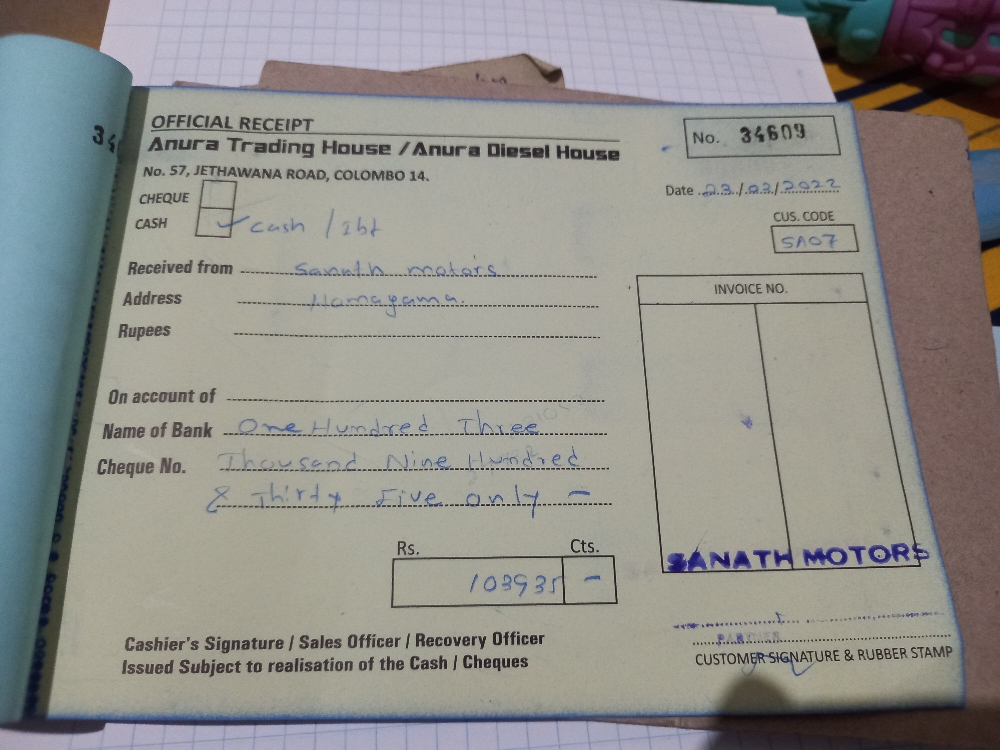 34
OFFICIAL RECEIPT
Anura Trading House / Anura Diesel House
No. 57, JETHAWANA ROAD, COLOMBO 14.
No. 34609
Date 23/03/2022
CHEQUE
CASH ✓ cash / Ibt
CUS. CODE
SA07
Received from Sanath motors
Address Homagama.
Rupees
INVOICE NO.
On account of
Name of Bank One Hundred Three
Cheque No. Thousand Nine Hundred
& Thirty Five only –
Rs. Cts.
103935 –
SANATH MOTORS
PARTNER
Cashier's Signature / Sales Officer / Recovery Officer
Issued Subject to realisation of the Cash / Cheques
CUSTOMER SIGNATURE & RUBBER STAMP